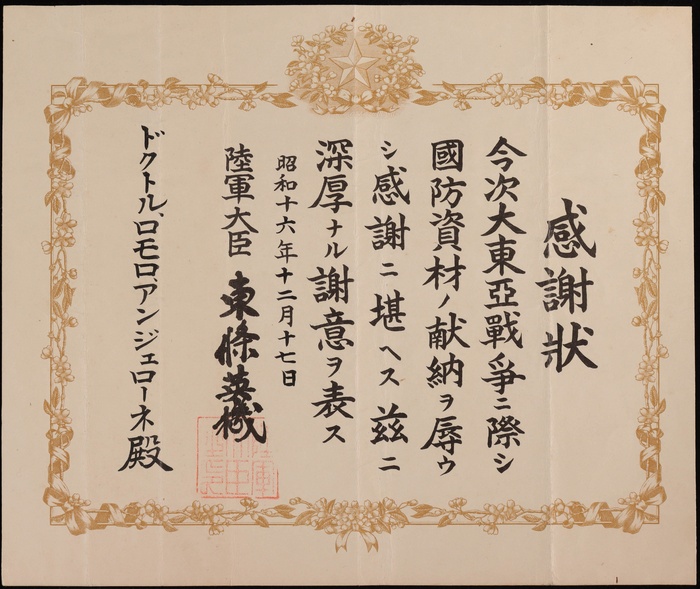 感謝狀
今次大東亞戰爭ニ際シ
國防資材ノ献納ヲ辱ウ
シ感謝ニ堪ヘス茲ニ
深厚ナル謝意ヲ表ス
昭和十六年十二月十七日
陸軍大臣 東條英機
ドクトル、ロモロアンジェローネ殿